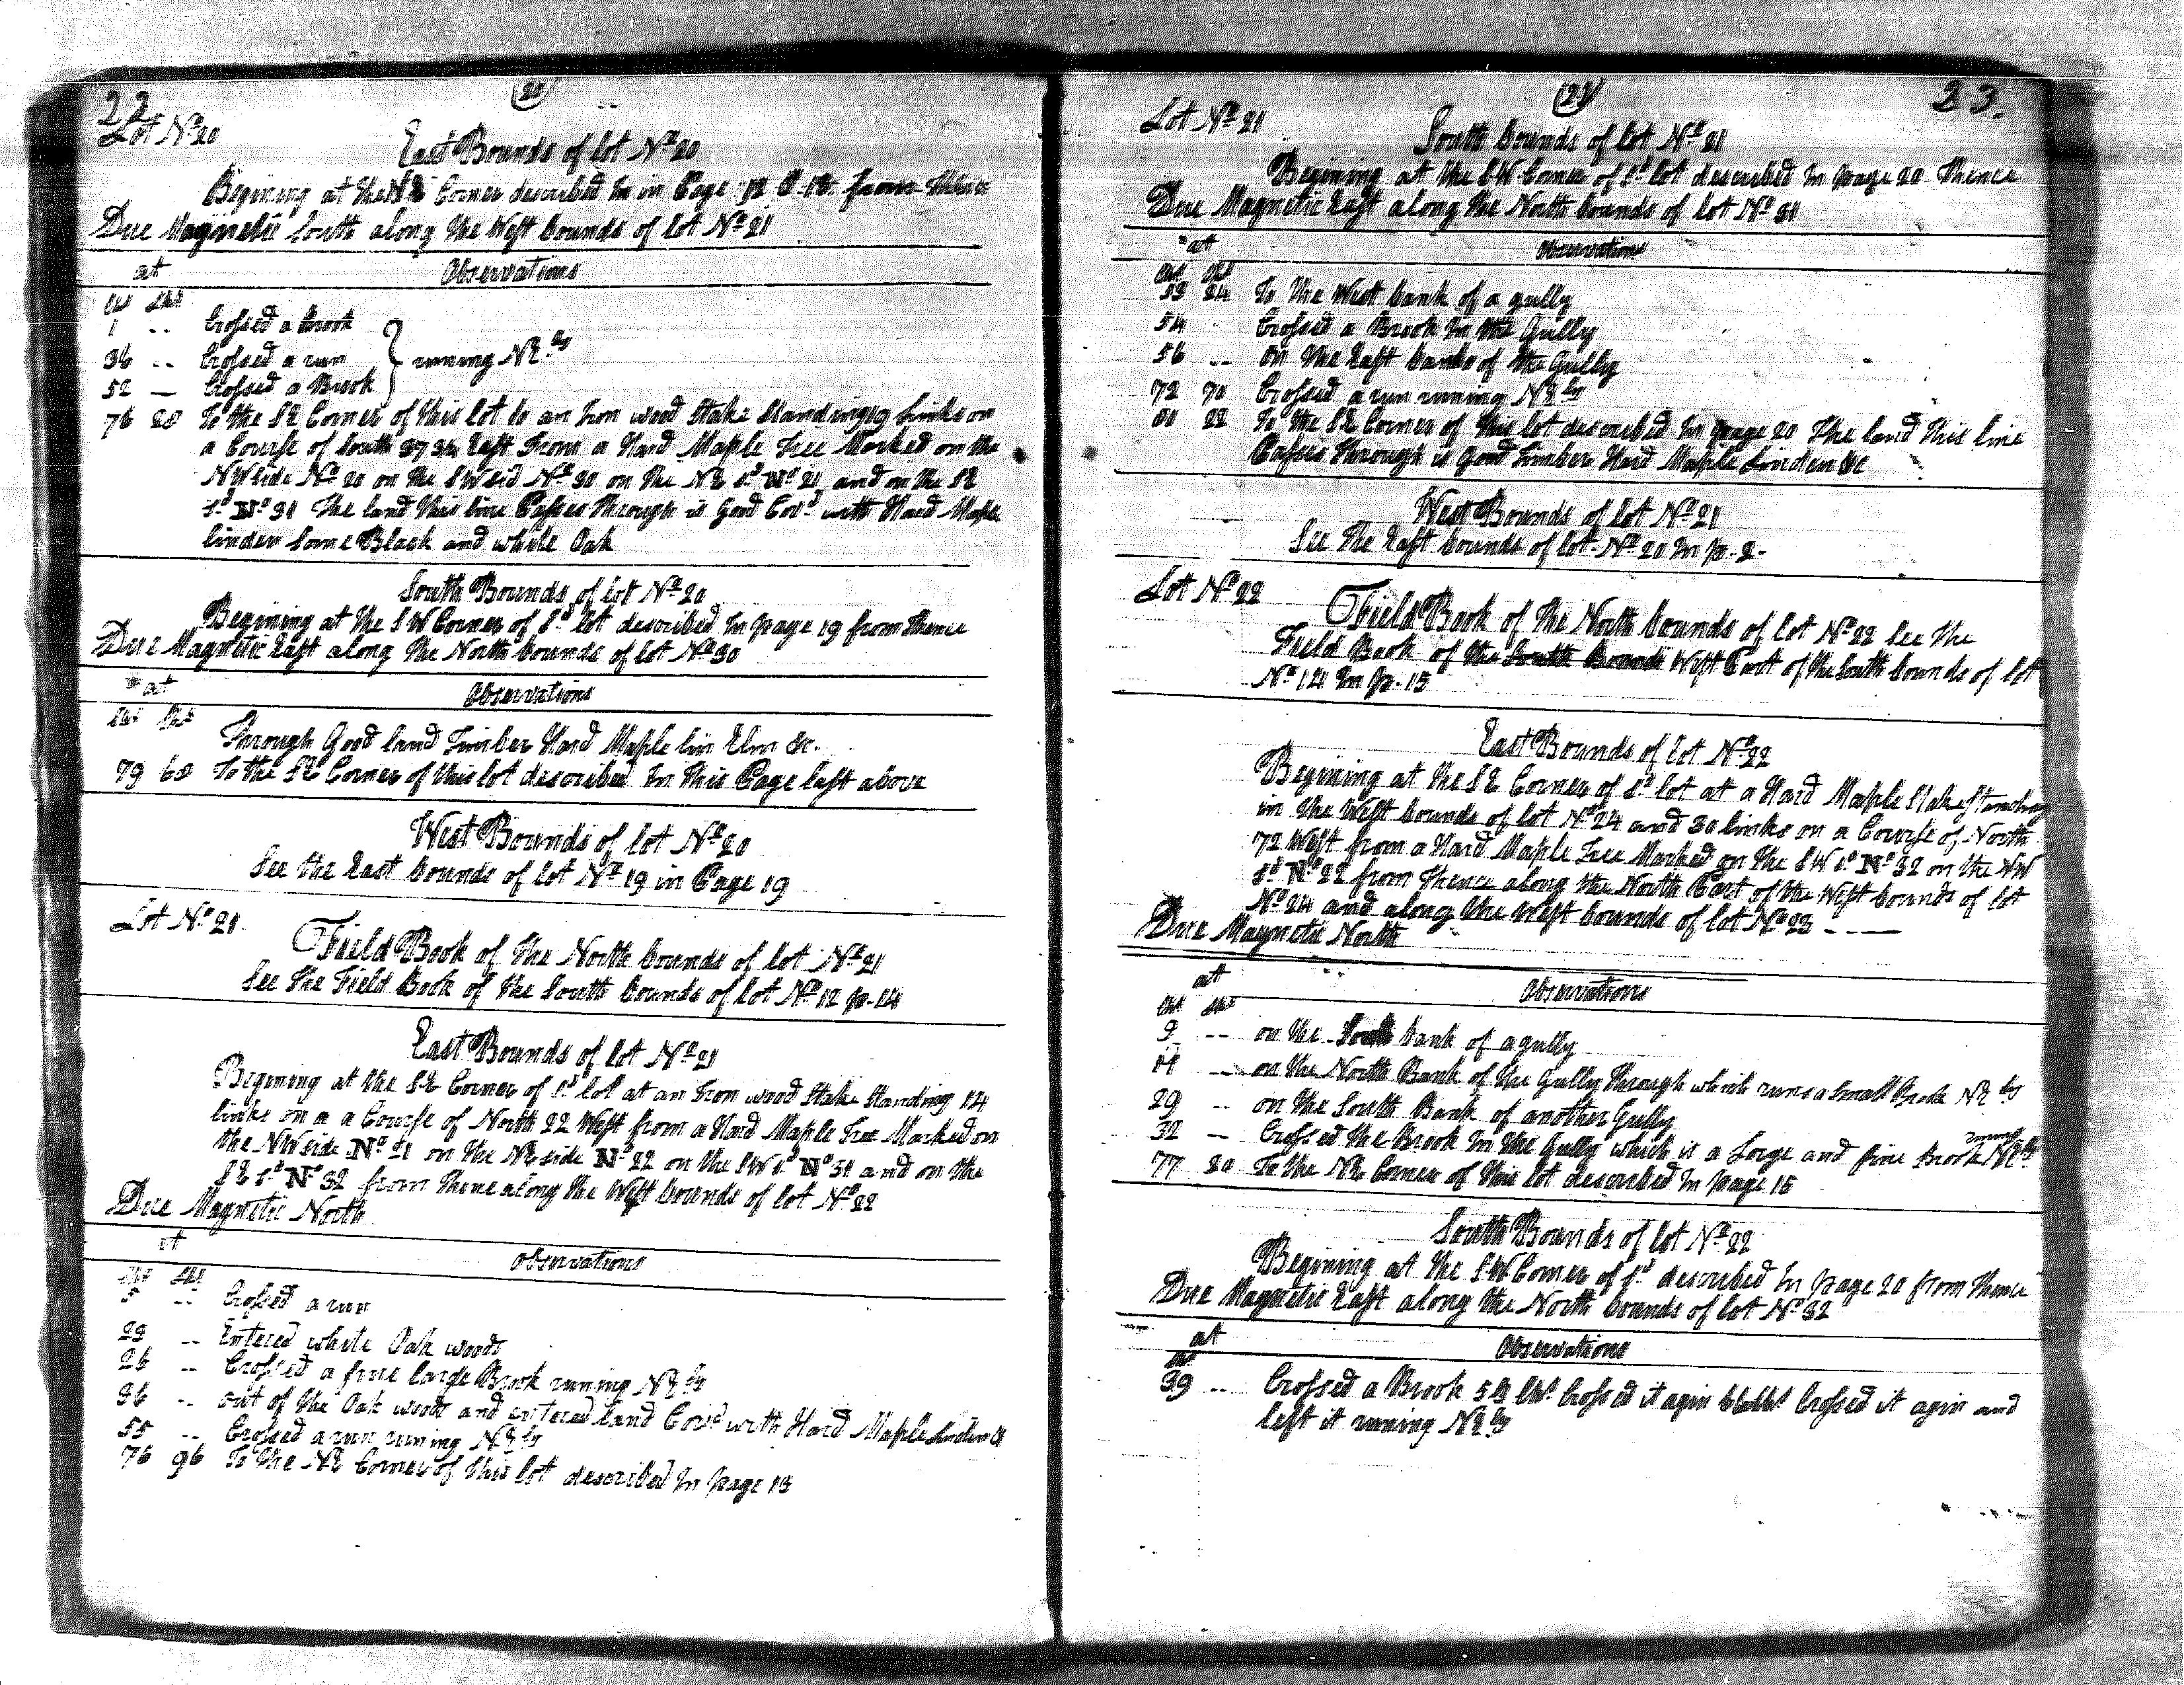 22
(20)
Lot No 20
East Bounds of lot No 20
Begining at the NE Corner described In in Page 12 from thence
Due Magnetic South along the West bounds of lot No 21
at Observations
Chs Lks
1 -- Crossed a Brook
36 -- Crossed a run } runing NEly
52 — Crossed a Brook
76 28 To the SE Corner of this lot to an Iron wood Stake Standing 19 Links on
a Course of South 37 32 East From a Hard Maple Tree Marked on the
NW side No 20 on the SW sid No 30 on the NE sd No 21 and on the SE
sd No 31 The land this line Passes through is Good Covd with Hard Maple
linden Some Black and white Oak
South Bounds of lot No 20
Begining at the SW Corner of sd lot described In page 19 from thence
Due Magnetic East along the North bounds of lot No 30
at Observations
Chs Lks
Through Good land Timber Hard Maple lin Elm &c.
79 68 To the SE Corner of this lot described In this Page last above
West Bounds of lot No 20
See the East bounds of lot No 19 in Page 19
Lot No 21.
Field Book of the North bounds of lot No 21
See the Field Book of the South bounds of lot No 12 p-14
East Bounds of lot No 21
Begining at the SE Corner of sd lot at an Iron wood Stake Standing 14
links on a a Course of North 22 West from a Hard Maple Tree Marked on
the NW side No 21 on the NE side No 22 on the SW sd No 31 and on the
SE sd No 32 from thence along the West bounds of lot No 22
Due Magnetic North
at Observations
Chs Lks
5 -- Crossed a run
23 -- Entered white Oak woods
26 -- Crossed a fine large Brook runing NEly
36 -- out of the Oak woods and entered land Covd with Hard Maple Linden &
55 -- Crossed a run runing NEly
76 96 To the NE Corner of this lot described In page 13
23.
(21)
Lot No 21
South bounds of lot No 21
Begining at the SW Corner of sd lot described In page 20 Thence
Due Magnetic East along the North bounds of lot No 31
at Observations
Chs Lks
53 24 To the West bank of a gully
54 Crossed a Brook In the Gully
56 -- on the East banks of the Gully
72 70 Crossed a run runing NEly
80 22 To the SE Corner of this lot described In page 20 The land this line
Passes through is Good Timber Hard Maple Linden &c
West Bounds of lot No 21
See the East bounds of lot No 20 In p-2-
Lot No 22
Field Book of the North bounds of lot No 22 See the
Field Book of the South Bounds West Part of the South bounds of lot
No 121 In p-15
East Bounds of lot No 22
Begining at the SE Corner of sd lot at a Hard Maple Stake Standing
in the West bounds of lot No 24 and 30 links on a Course of North
72 West from a Hard Maple Tree Marked on the SW sd No 32 on the NW
sd No 22 from thence along the North Part of the West bounds of lot
No 24 and along the West bounds of lot No 23 - - —
Due Magnetic North
at Observations
Chs Lks
9 -- on the South bank of a gully
11 -- on the North Bank of the Gully through which runs a Small Brook NEly
29 -- on the South Bank of another Gully
32 -- Crossed the Brook In the Gully which is a Large and fine Brook runing NEly
77 20 To the NE Corner of this lot described In page 15
South Bounds of lot No 22
Begining at the SW Corner of sd described In page 20 from thence
Due Magnetic East along the North bounds of lot No 32
at Observations
Chs
39 -- Crossed a Brook 54 Chs Crossed it agin 66 Chs Crossed it agin and
left it runing NEly